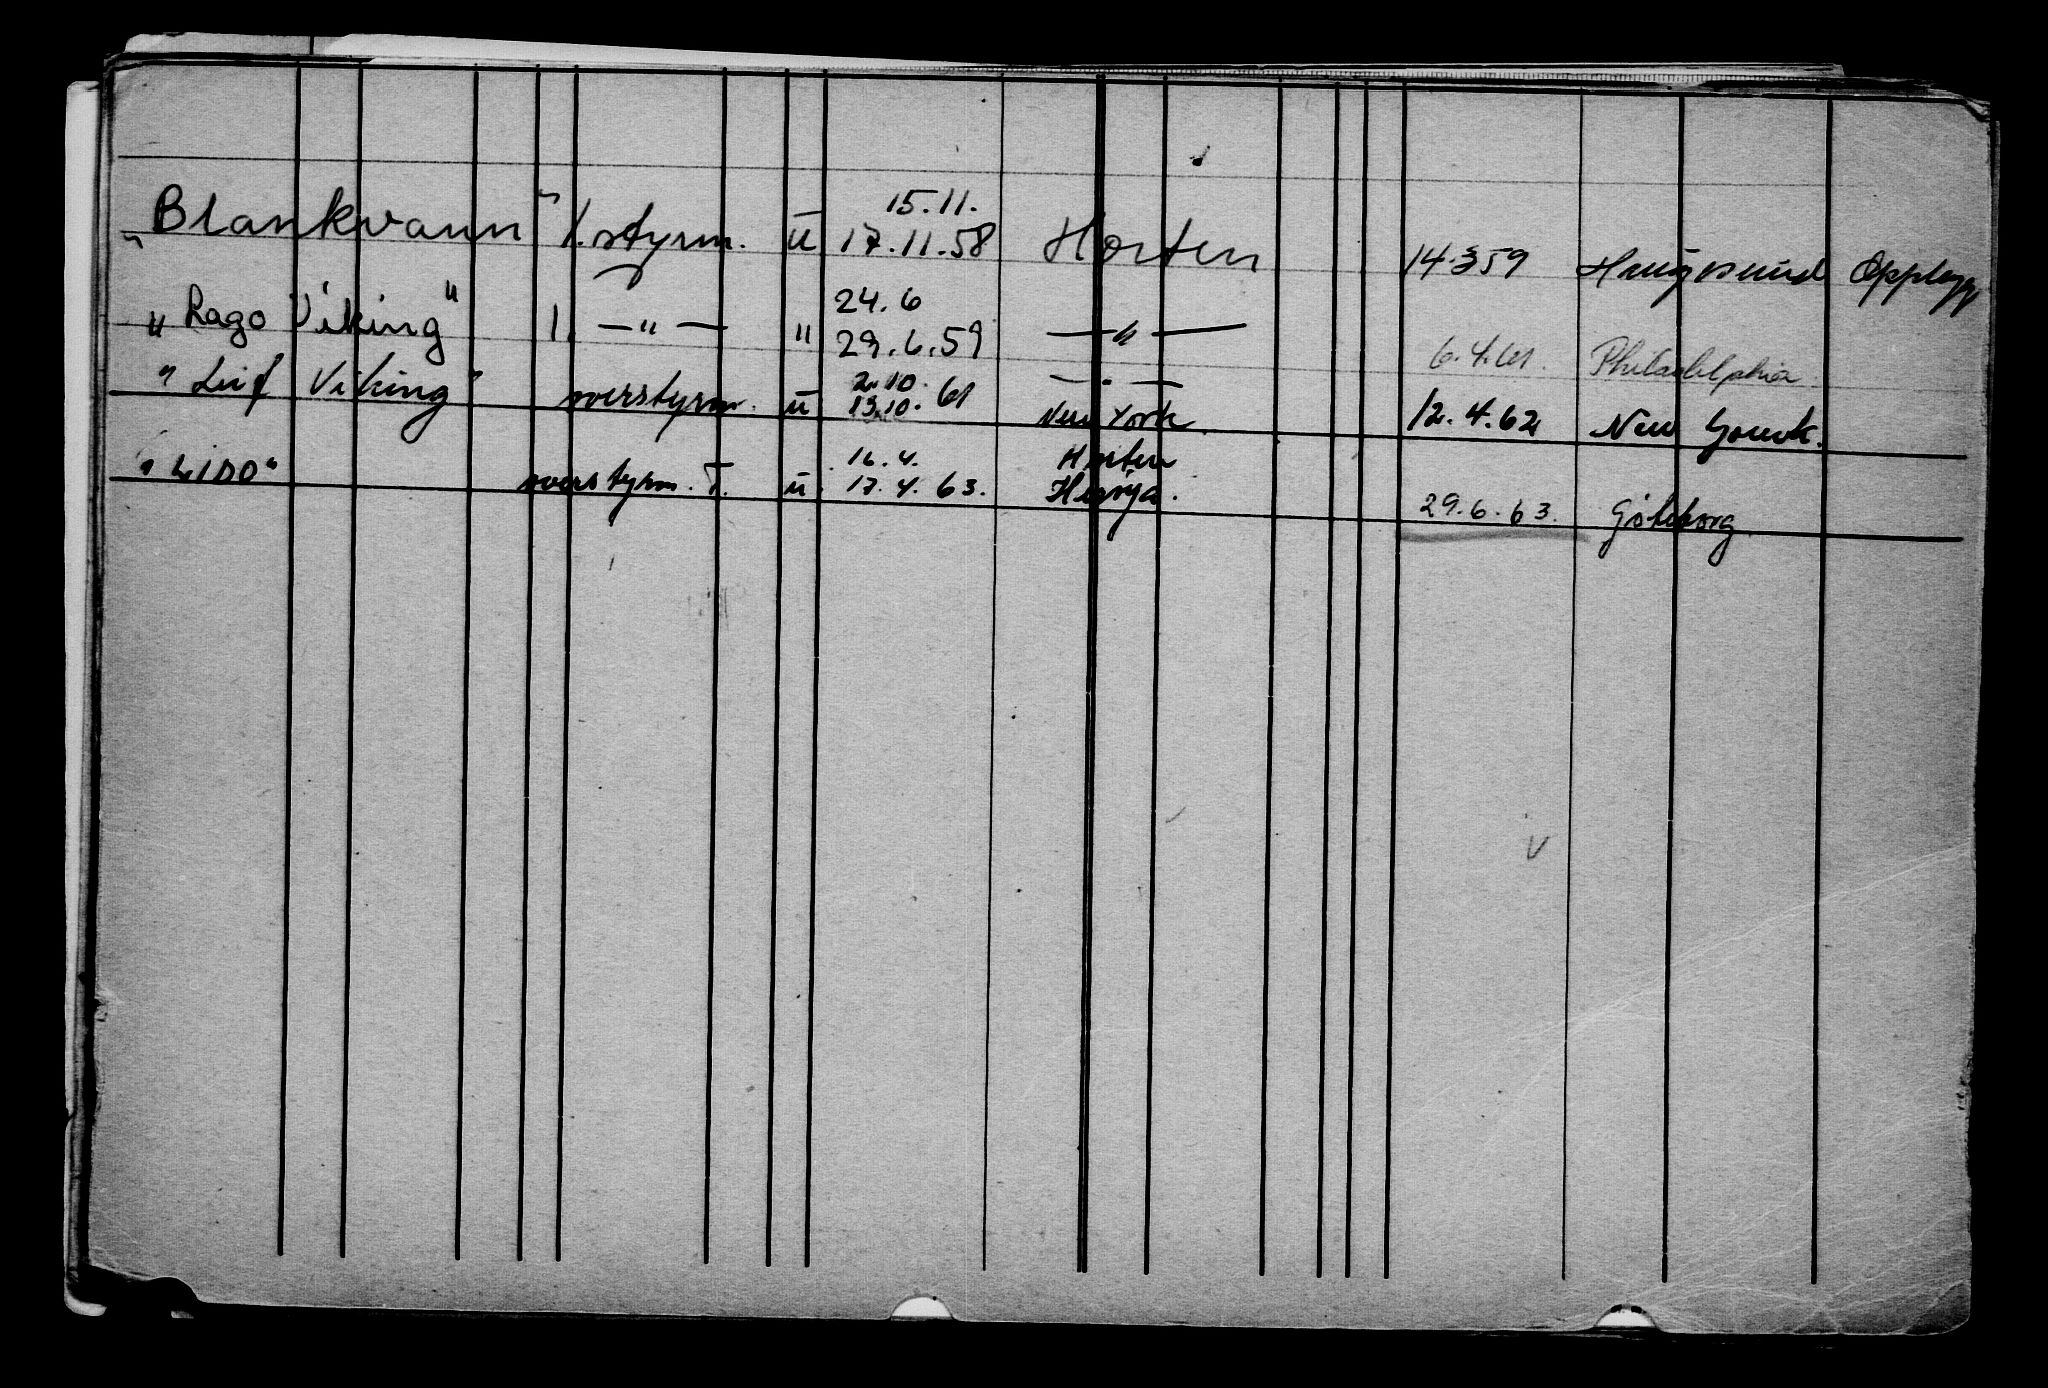 15.11.
"Blankvann" 1. styrm. u 17.11.58 Horten 14.3 59 Haugesund Opplegg
24.6
"Rago Viking" 1. —"— " 29.6.59 —"— 6.4.61. Philadelphia
2.10. —"—
"Leif Viking" overstyrm. u 13.10. 61 New York. 12.4.62 New Yourk.
16.4. Horten
"LIDO" overstyrm. T. u 17.4.63. Herøya. 29.6.63. Gøteborg